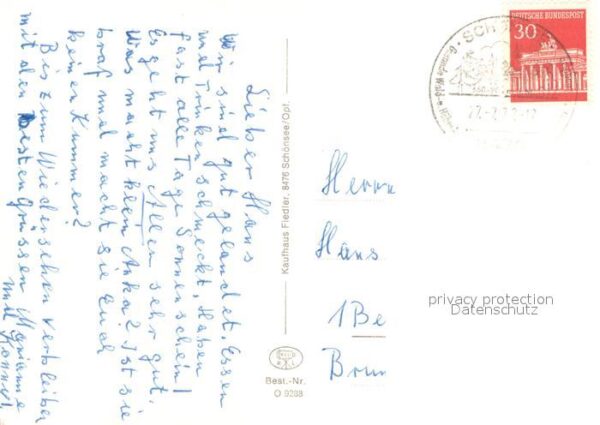 Lieber Hans
Wir sind gut gelandet. Essen
und Trinken schmeckt, haben
fast alle Tage Sonnenschein!
Es geht uns Allen sehr gut.
Was macht klein Anka? Ist sie
brav und macht sie Euch
keinen Kummer?
Bis zum Wiedersehen verbleiben
mit den besten Grüssen Marianne
und
Kaufhaus Fiedler, 8476 Schönsee/Opf.
Best.-Nr.
O 9288
DEUTSCHE BUNDESPOST
30
SCH
Herrn
Hans
1 Be
Brun
privacy protection
Datenschutz